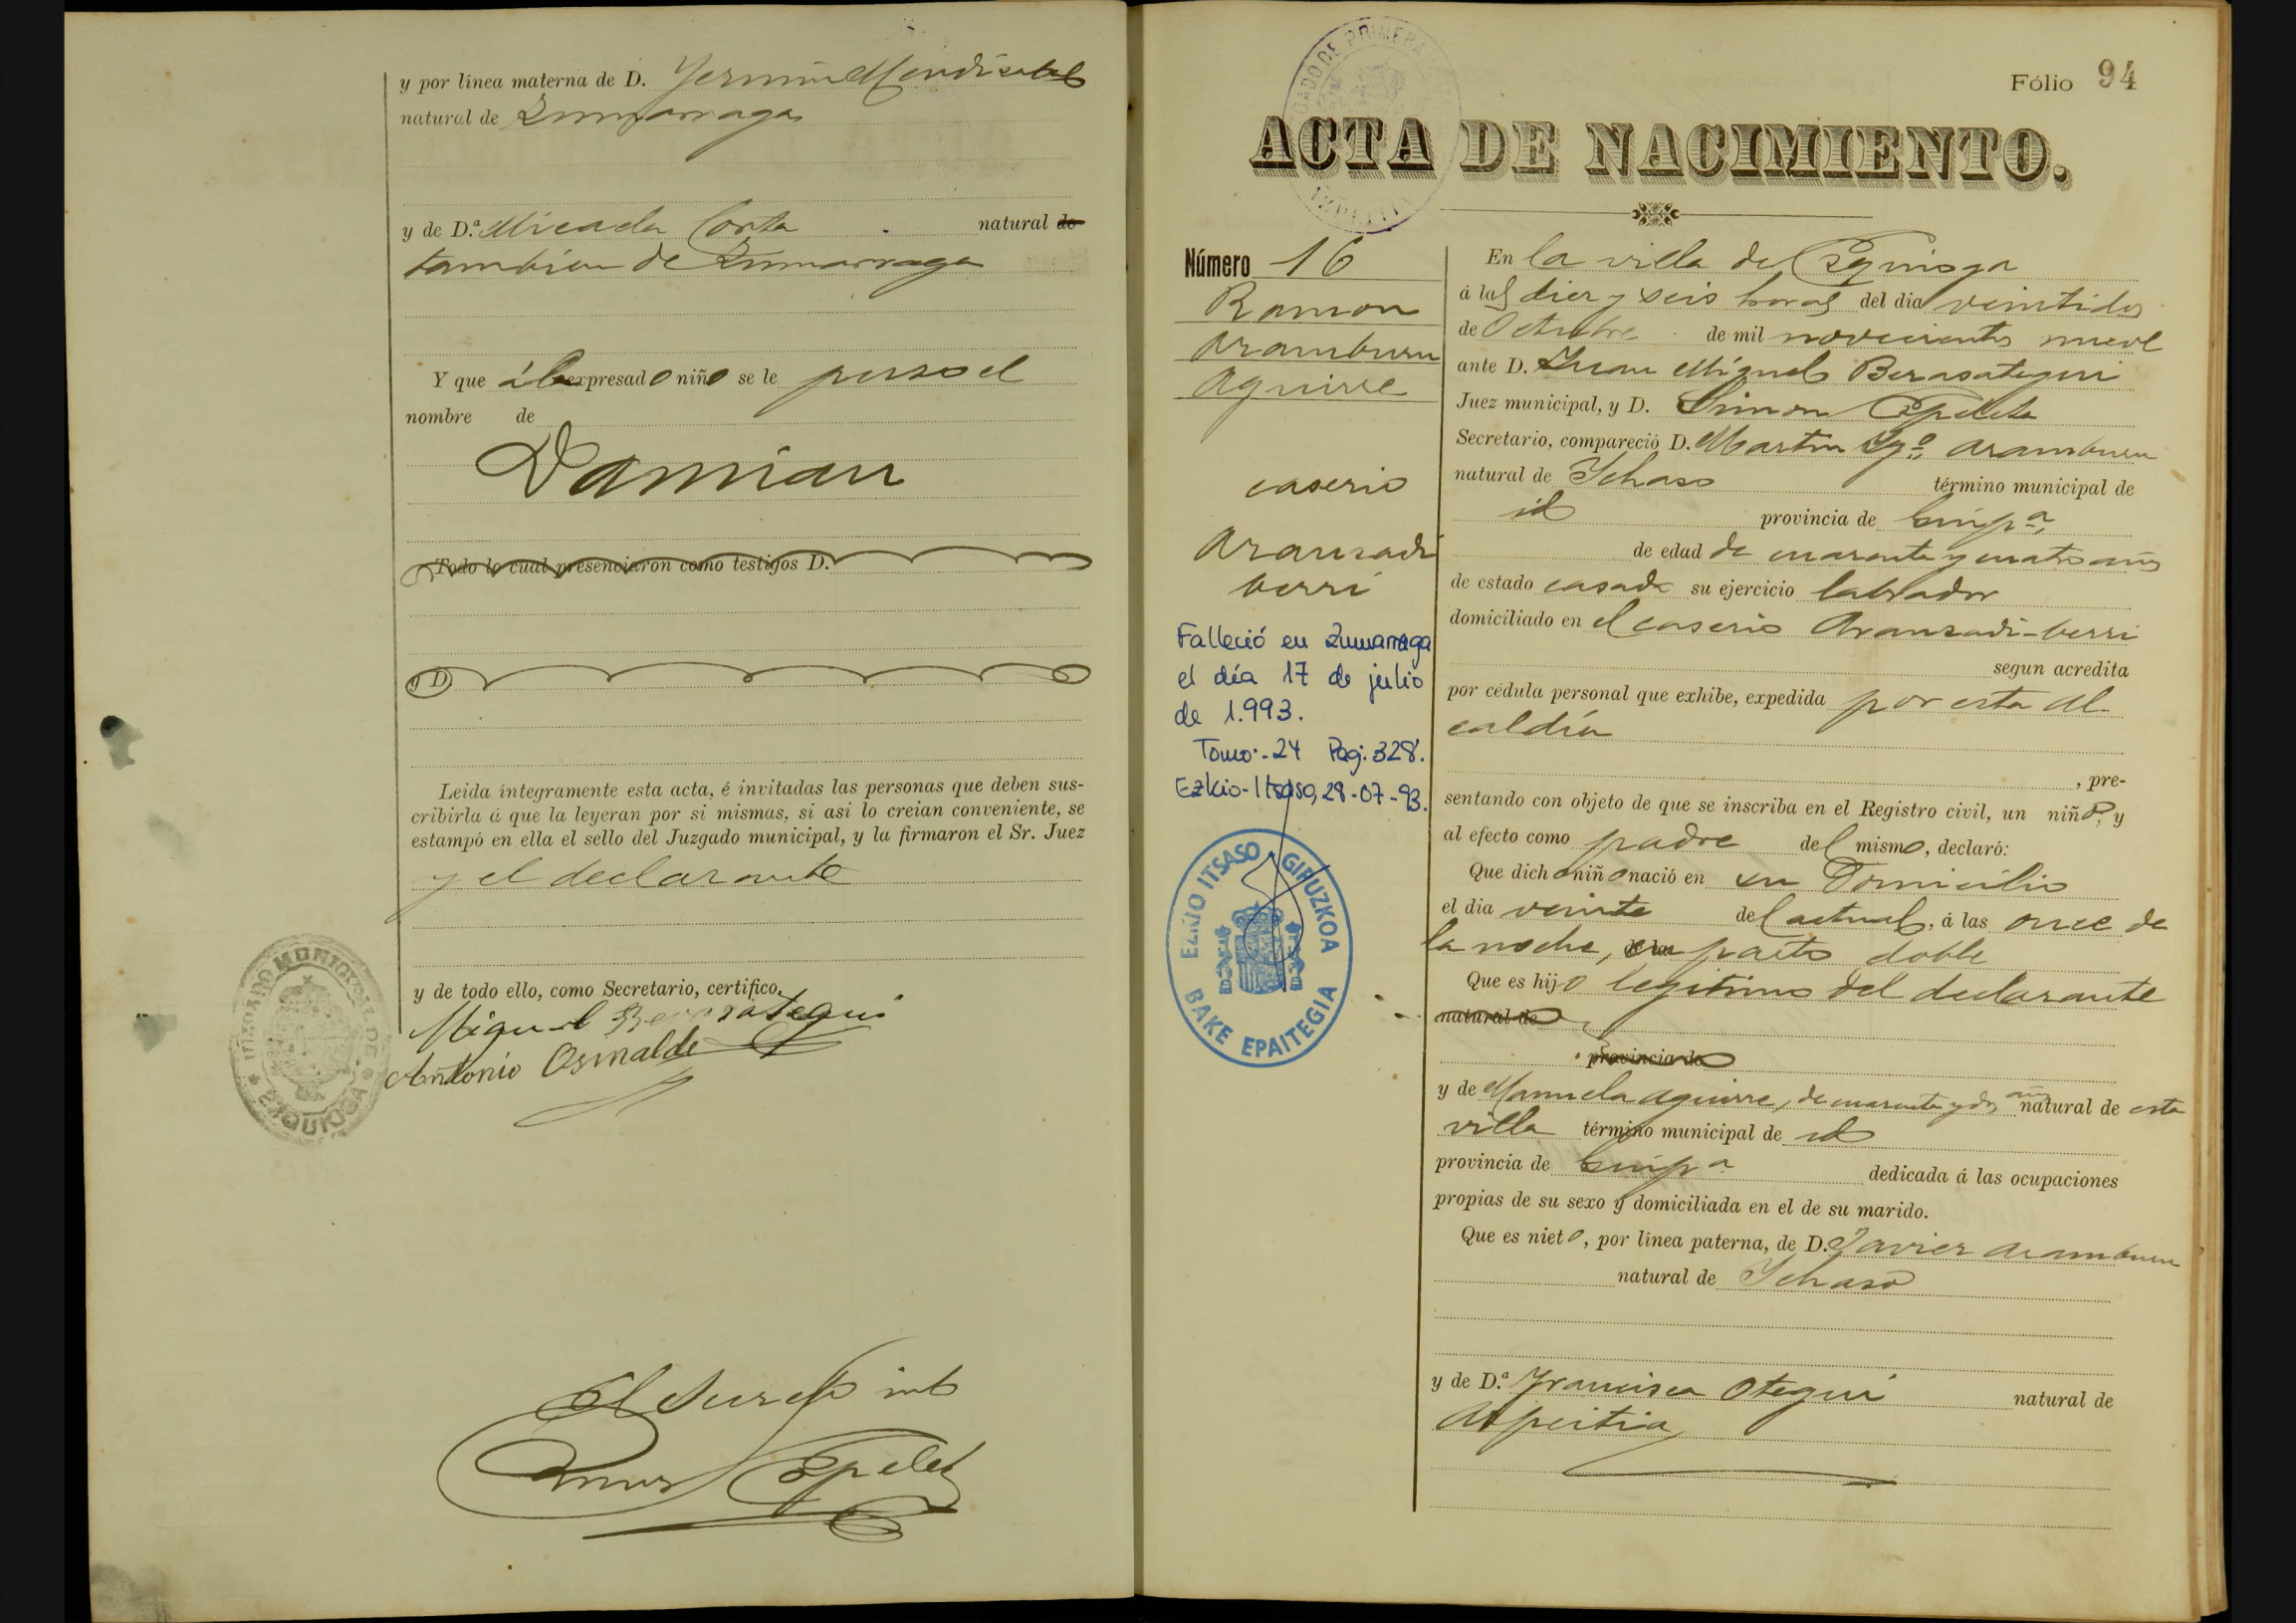 y por línea materna de D. Fermin Mendizabal
natural de Zumarraga
y de D.ª Micaela Corta natural de
tambien de Zumarraga
Y que al expresado niño se le puso el
nombre de
Damian
Todo lo cual presenciaron como testigos D.
y D.
Leida íntegramente esta acta, é invitadas las personas que deben sus-
cribirla á que la leyeran por si mismas, si asi lo creian conveniente, se
estampó en ella el sello del Juzgado municipal, y la firmaron el Sr. Juez
y el declarante
y de todo ello, como Secretario, certifico.
Miguel Berasategui
Antonio Osinalde
JUZGADO MUNICIPAL DE EZQUIOGA
Simon Epelde
Fólio 94
JUZGADO DE PRIMERA
AZPEITIA
ACTA DE NACIMIENTO.
Número 16
Ramon
Aramburu
Aguirre
caserio
Aranzadi
berri
Falleció en Zumarraga
el día 17 de julio
de 1.993.
Tomo.-24 Pag. 328.
Ezkio-Itsaso, 28-07-93.
EZKIO ITSASO GIPUZKOA
BAKE EPAITEGIA
En la villa de Ezquioga
á las diez y seis horas del dia veintidos
de Octubre de mil novecientos nueve
ante D. Juan Miguel Berasategui
Juez municipal, y D. Simon Epelde
Secretario, compareció D. Martin Ygº Aramburu
natural de Ichaso término municipal de
id provincia de Guipª
de edad de cuarenta y cuatro años
de estado casado su ejercicio labrador
domiciliado en el caserio Aranzadi-berri
segun acredita
por cédula personal que exhibe, expedida por esta Al-
caldía
, pre-
sentando con objeto de que se inscriba en el Registro civil, un niño, y
al efecto como padre del mismo, declaró:
Que dicho niño nació en su Domicilio
el dia veinte del actual, á las once de
la noche, en parto doble
Que es hijo legitimo del declarante
natural de
provincia de
y de Manuela Aguirre, de cuarenta y dos años natural de esta
villa término municipal de id
provincia de Guipª dedicada á las ocupaciones
propias de su sexo y domiciliada en el de su marido.
Que es nieto, por línea paterna, de D. Javier Aramburu
natural de Ichaso
y de D.ª Francisca Otegui natural de
Azpeitia